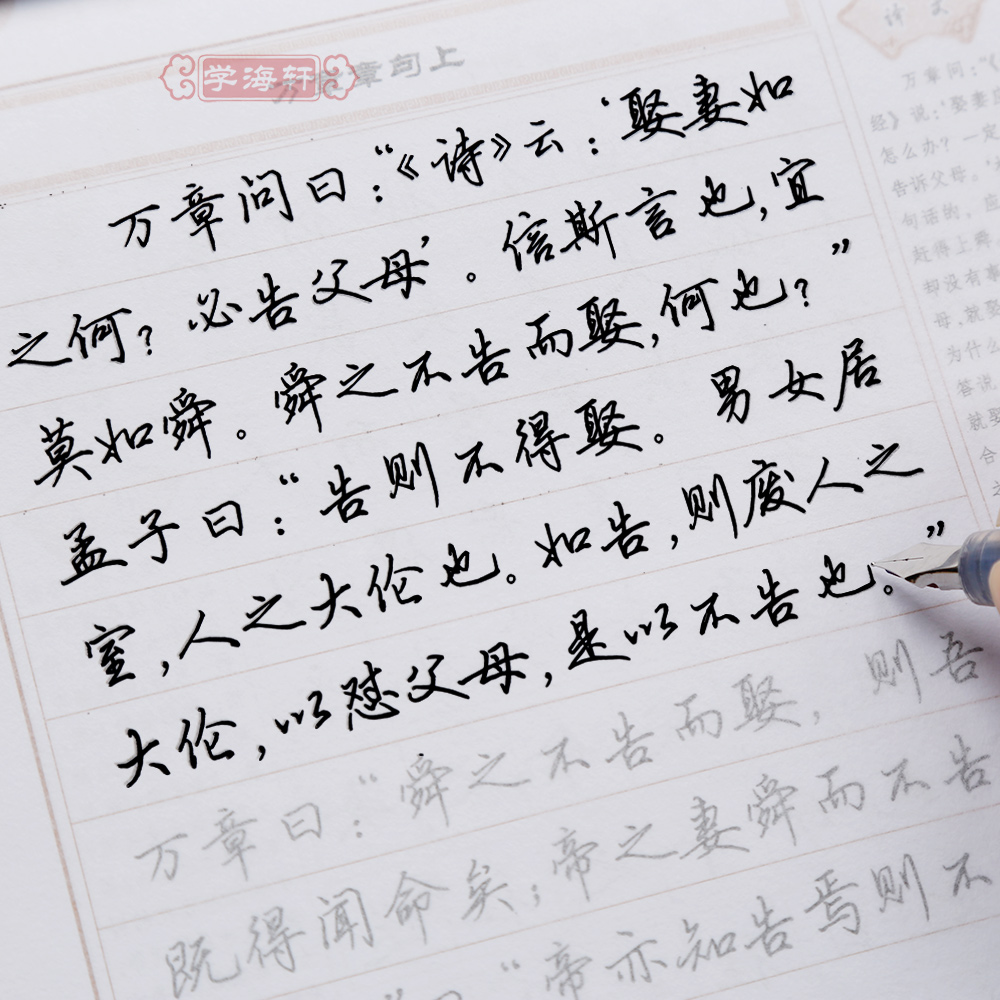 学海轩
万章句上
万章问曰：“《诗》云：‘娶妻如
之何？必告父母’。信斯言也，宜
莫如舜。舜之不告而娶，何也？”
孟子曰：“告则不得娶。男女居
室，人之大伦也。如告，则废人之
大伦，以怼父母，是以不告也。”
万章曰：“舜之不告而娶，则吾
既得闻命矣；帝之妻舜而不告
“帝亦知告焉则不
译文
万章问：“《
经》说：‘娶妻应
怎么办？一定
告诉父母。’
句话的，应
赶得上舜，
却没有事
母，就娶
为什么
答说
就娶
合